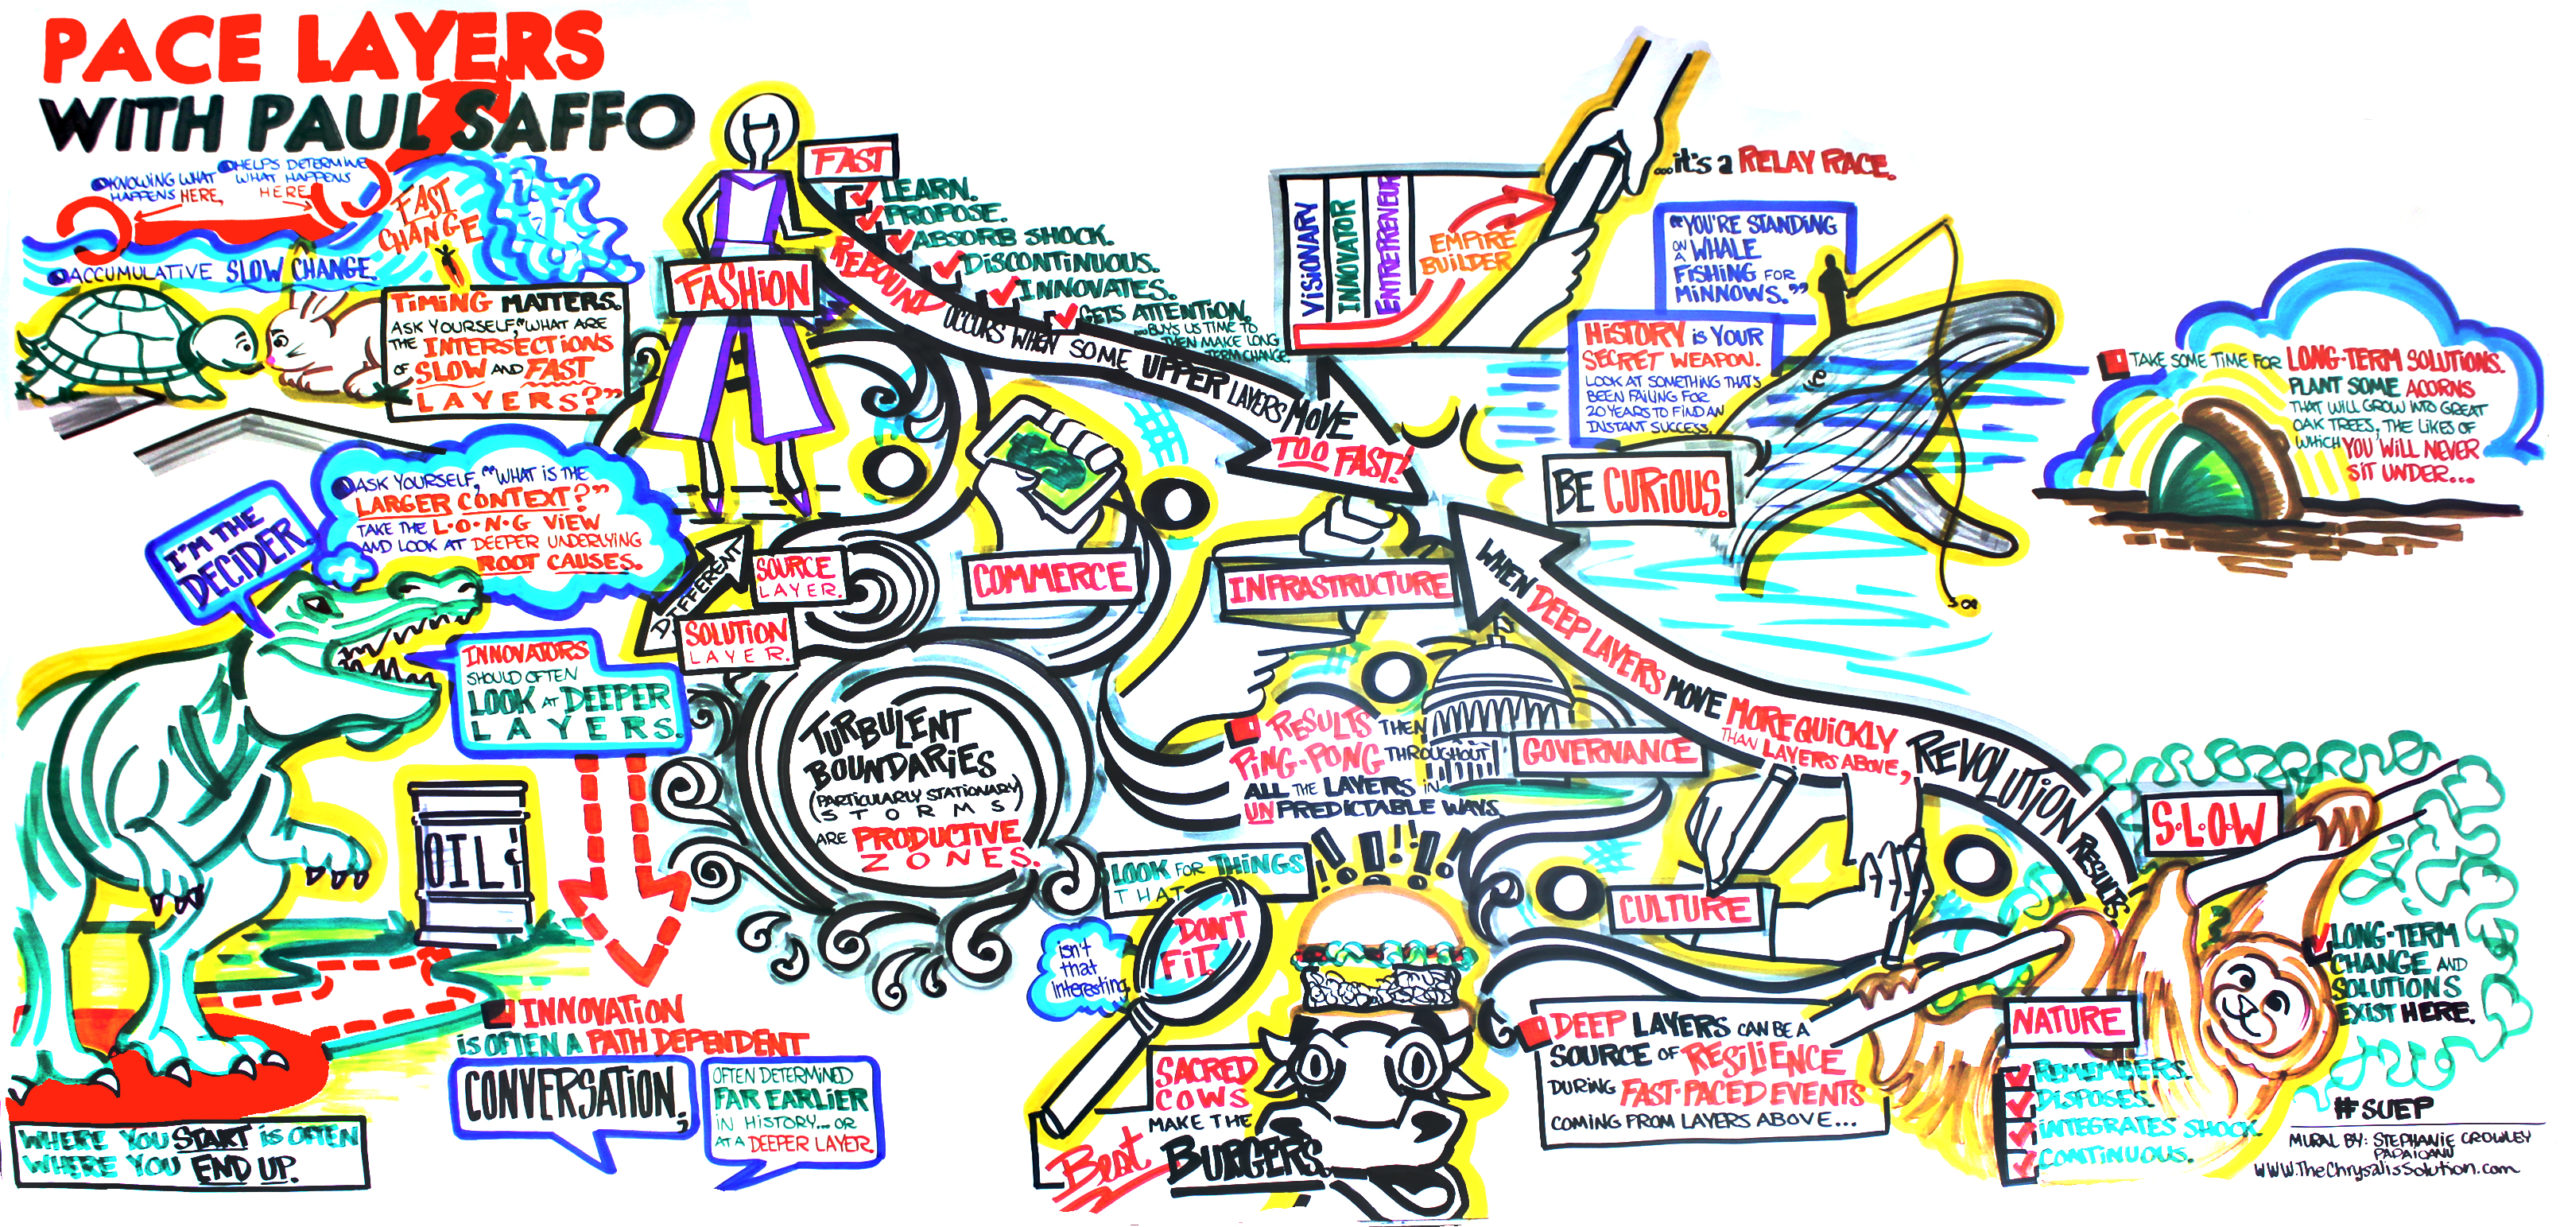 PACE LAYERS
WITH PAUL SAFFO
KNOWING WHAT
HAPPENS HERE,
HELPS DETERMINE
WHAT HAPPENS
HERE
FAST
CHANGE
ACCUMULATIVE SLOW CHANGE
TIMING MATTERS.
ASK YOURSELF, "WHAT ARE
THE INTERSECTIONS
OF SLOW AND FAST
LAYERS?"
I'M THE
DECIDER.
ASK YOURSELF, "WHAT IS THE
LARGER CONTEXT?"
TAKE THE L·O·N·G VIEW
AND LOOK AT DEEPER UNDERLYING
ROOT CAUSES.
INNOVATORS
SHOULD OFTEN
LOOK AT DEEPER
LAYERS.
OIL
INNOVATION
IS OFTEN A PATH DEPENDENT
CONVERSATION,
OFTEN DETERMINED
FAR EARLIER
IN HISTORY... OR
AT A DEEPER LAYER.
WHERE YOU START IS OFTEN
WHERE YOU END UP.
FASHION
FAST
LEARN.
PROPOSE.
ABSORB SHOCK.
DISCONTINUOUS.
INNOVATES.
GETS ATTENTION.
...BUYS US TIME TO
THEN MAKE LONG
TERM CHANGE.
REBOUND OCCURS WHEN SOME UPPER LAYERS MOVE
TOO FAST!
DIFFERENT
SOURCE
LAYER.
SOLUTION
LAYER.
COMMERCE
INFRASTRUCTURE
TURBULENT
BOUNDARIES
(PARTICULARLY STATIONARY
STORMS)
ARE PRODUCTIVE
ZONES.
RESULTS THEN
PING-PONG THROUGHOUT
ALL THE LAYERS IN
UNPREDICTABLE WAYS.
GOVERNANCE
WHEN DEEP LAYERS MOVE MORE QUICKLY
THAN LAYERS ABOVE,
REVOLUTION RESULTS.
CULTURE
LOOK FOR THINGS
THAT
DON'T
FIT.
isn't
that
interesting
SACRED
COWS
MAKE THE
BEST BURGERS.
DEEP LAYERS CAN BE A
SOURCE OF RESILIENCE
DURING FAST-PACED EVENTS
COMING FROM LAYERS ABOVE...
VISIONARY
INNOVATOR
ENTREPRENEUR
EMPIRE
BUILDER
...it's a RELAY RACE.
"YOU'RE STANDING
ON A WHALE
FISHING FOR
MINNOWS."
HISTORY IS YOUR
SECRET WEAPON.
LOOK AT SOMETHING THAT'S
BEEN FAILING FOR
20 YEARS TO FIND AN
INSTANT SUCCESS.
BE CURIOUS.
TAKE SOME TIME FOR LONG-TERM SOLUTIONS.
PLANT SOME ACORNS
THAT WILL GROW INTO GREAT
OAK TREES, THE LIKES OF
WHICH YOU WILL NEVER
SIT UNDER...
S·L·O·W
LONG-TERM
CHANGE AND
SOLUTIONS
EXIST HERE.
NATURE
REMEMBERS.
DISPOSES.
INTEGRATES SHOCK.
CONTINUOUS.
#SUEP
MURAL BY: STEPHANIE CROWLEY
PAPAIOANU
WWW.TheChrysalisSolution.com